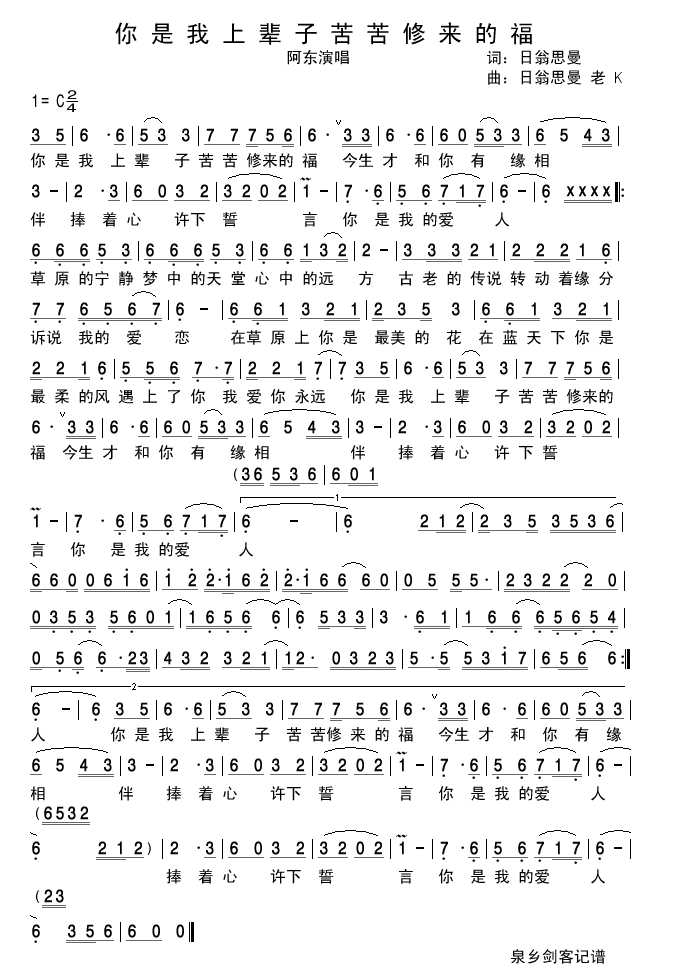 你是我上辈子苦苦修来的福
阿东演唱 词：日翁思曼
曲：日翁思曼 老 K
1= C 2/4
3 5|6 ·6|5 3 3|7 7 7 5 6|6· ∨3 3|6 ·6|6 0 5 3 3|6 5 4 3|
你 是 我 上 辈 子 苦 苦 修来的 福 今生 才 和 你 有 缘 相
3 -|2 ·3|6 0 3 2|3 2 0 2|1 -|7 ·6|5 6 7 1 7|6 -|6 X X X X:
伴 捧 着 心 许下 誓 言 你 是 我 的爱 人
6 6 6 5 3|6 6 6 5 3|6 6 1 3 2|2 -|3 3 3 2 1|2 2 2 1 6|
草 原 的宁 静 梦 中 的天 堂 心 中 的远 方 古 老 的 传说 转 动 着缘 分
7 7 6 5 6 7|6 -|6 6 1 3 2 1|2 3 5 3|6 6 1 3 2 1|
诉说 我的 爱 恋 在草 原 上你 是 最美 的 花 在 蓝 天 下你 是
2 2 1 6|5 5 6 7 ·7|2 2 1 7|7 3 5|6 ·6|5 3 3|7 7 7 5 6|
最 柔 的风 遇 上 了 你 我 爱 你 永远 你 是 我 上 辈 子 苦 苦 修来的
6· ∨3 3|6 ·6|6 0 5 3 3|6 5 4 3|3 -|2 ·3|6 0 3 2|3 2 0 2|
福 今生 才 和 你 有 缘 相 伴 捧 着 心 许 下 誓
(3 6 5 3 6|6 0 1
1 -|7 ·6|5 6 7 1 7|1 6 -|6 2 1 2|2 3 5 3 5 3 6|
言 你 是 我 的爱 人
6 6 0 0 6 1 6|1 2 2·1 6 2|2·1 6 6 6 0|0 5 5 5·|2 3 2 2 2 0|
0 3 5 3 5 6 0 1|1 6 5 6 6|6 5 3 3|3 ·6 1|1 6 6 6 5 6 5 4|
0 5 6 6 ·2 3|4 3 2 3 2 1|1 2· 0 3 2 3|5 ·5 5 3 1 7|6 5 6 6:
2
6 -|6 3 5|6 ·6|5 3 3|7 7 7 5 6|6· ∨3 3|6 ·6|6 0 5 3 3|
人 你 是 我 上 辈 子 苦 苦修 来 的 福 今生 才 和 你 有 缘
6 5 4 3|3 -|2 ·3|6 0 3 2|3 2 0 2|1 -|7 ·6|5 6 7 1 7|
相 伴 捧 着 心 许下 誓 言 你 是 我 的爱 人
(6 5 3 2
6 2 1 2)|2 ·3|6 0 3 2|3 2 0 2|1 -|7 ·6|5 6 7 1 7|
捧 着 心 许下 誓 言 你 是 我 的爱 人
(2 3
6 3 5 6|6 0 0
泉乡剑客记谱